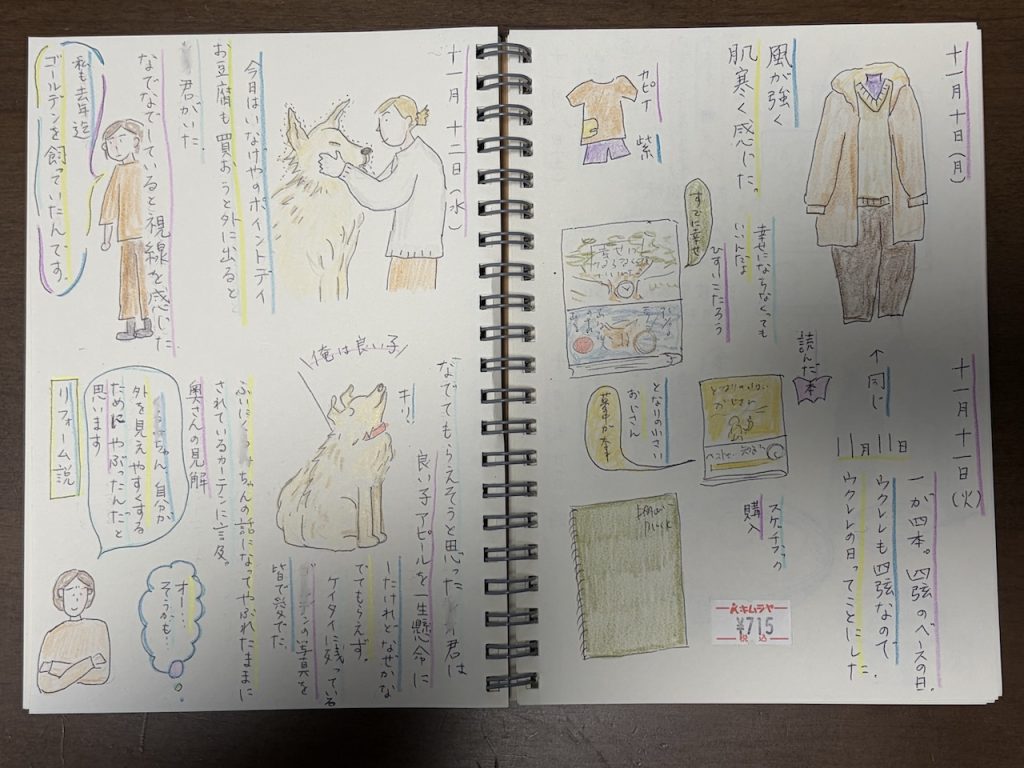 十一月十日(月)
風が強く
肌寒く感じた。
カピナ 紫
幸せにならなくても
いいんだよ
ひすいこたろう
すでに幸せ
読んだ本
となりの小さい
おじさん
購入
スケチブック
キムラヤ
¥715
税込
十一月十一日(火)
↑同じ
11月11日
一が四本。四弦のベースの日。
ウクレレも四弦なので
ウクレレの日ってことにした。
十一月十二日(水)
今日はいなげやのポイントデイ
お豆腐も買おうと外に出ると
君がいた。
なでなでしていると視線を感じた
私も去年迄
ゴールデンを飼っていたんです。
なでてもらえそうと思った 君は
良い子アピールを一生懸命に
キリ
俺は良い子
したけれどなぜかな
でてもらえず。
ケイタイに残っている
の写真を
皆で
ちゃんの話になってやぶれたままに
されているカーテンに言及。
奥さんの見解
ちゃん 自分が
外を見えやすくする
ためにやぶったんだっと
思います
リフォーム説
オー…
そうかも…